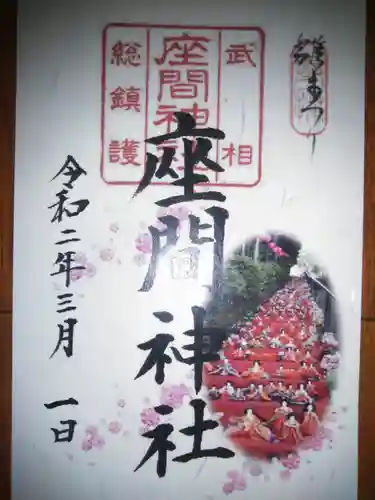 雛まつり
武相
座間神社
総鎮護
座間神社
令和二年三月一日